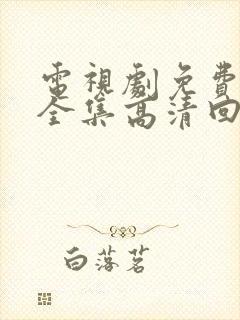 電視劇免費
全集高清回
白落茗